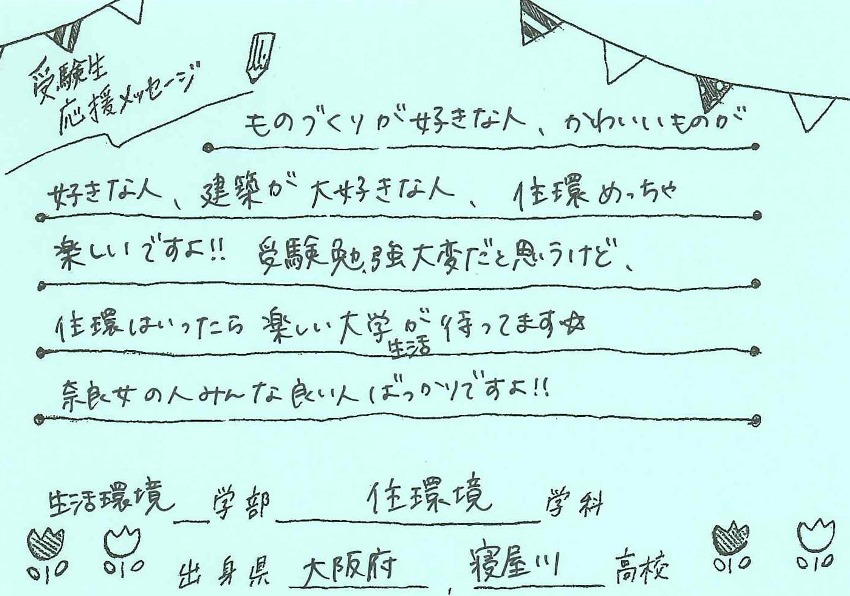 受験生
応援メッセージ
ものづくりが好きな人、かわいいものが
好きな人、建築が大好きな人、住環めっちゃ
楽しいですよ!! 受験勉強大変だと思うけど、
住環はいったら楽しい大学が待ってます☆
生活
奈良女の人みんな良い人ばっかりですよ!!
生活環境 学部 住環境 学科
出身県 大阪府 , 寝屋川 高校